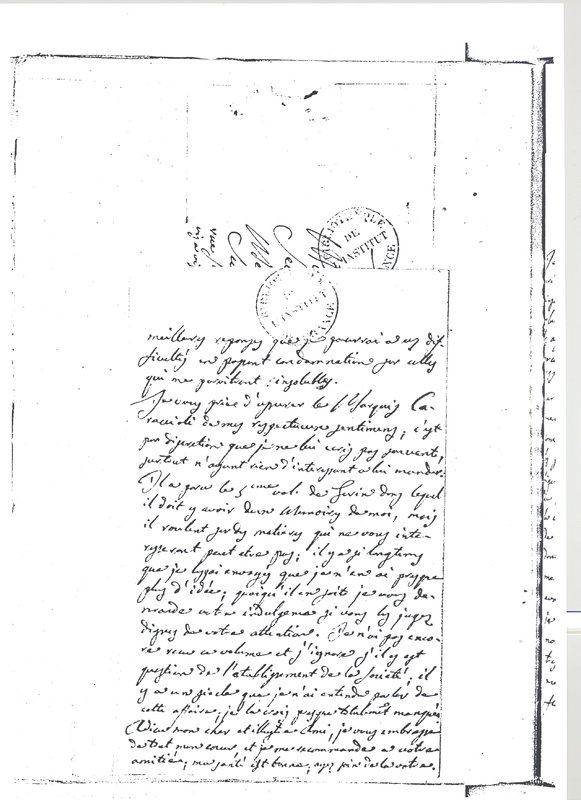 BIBLIOTHEQUE
DE
L'INSTITUT
L'INSTITUT
meilleurs reponses que je pourrai a vos dif-
ficultés en passant condamnation sur celles
qui me paroitront insolubles.
Je vous prie d'assurer le Marquis Ca-
raccioli de mes respectueux sentimens; c'est
par discretion que je ne lui ecris pas souvent,
surtout n'ayant rien d'interessant a lui mander.
Il a paru le 5eme vol. de Turin dans lequel
il doit y avoir deux Memoires de moi, mais
il roulent sur des matieres qui ne vous inte-
resseront peut etre pas; il y a si longtems
que je les ai envoyés que je n'en ai presque
plus d'idée; quoiqu'il en soit je vous de-
mande votre indulgence si vous les jugez
dignes de votre attention. Je n'ai pas enco-
re reçu ce volume et j'ignore s'il y est
question de l'etablissement de la Societé; il
y a un siecle que je n'ai entendu parler de
cette affaire; je la crois presque totalemt manquée.
Adieu mon cher et illustre Ami, je vous embrasse
de tout mon coeur, et je me recommande a votre
amitié; ma santé est bonne; ayez soin de la votre.